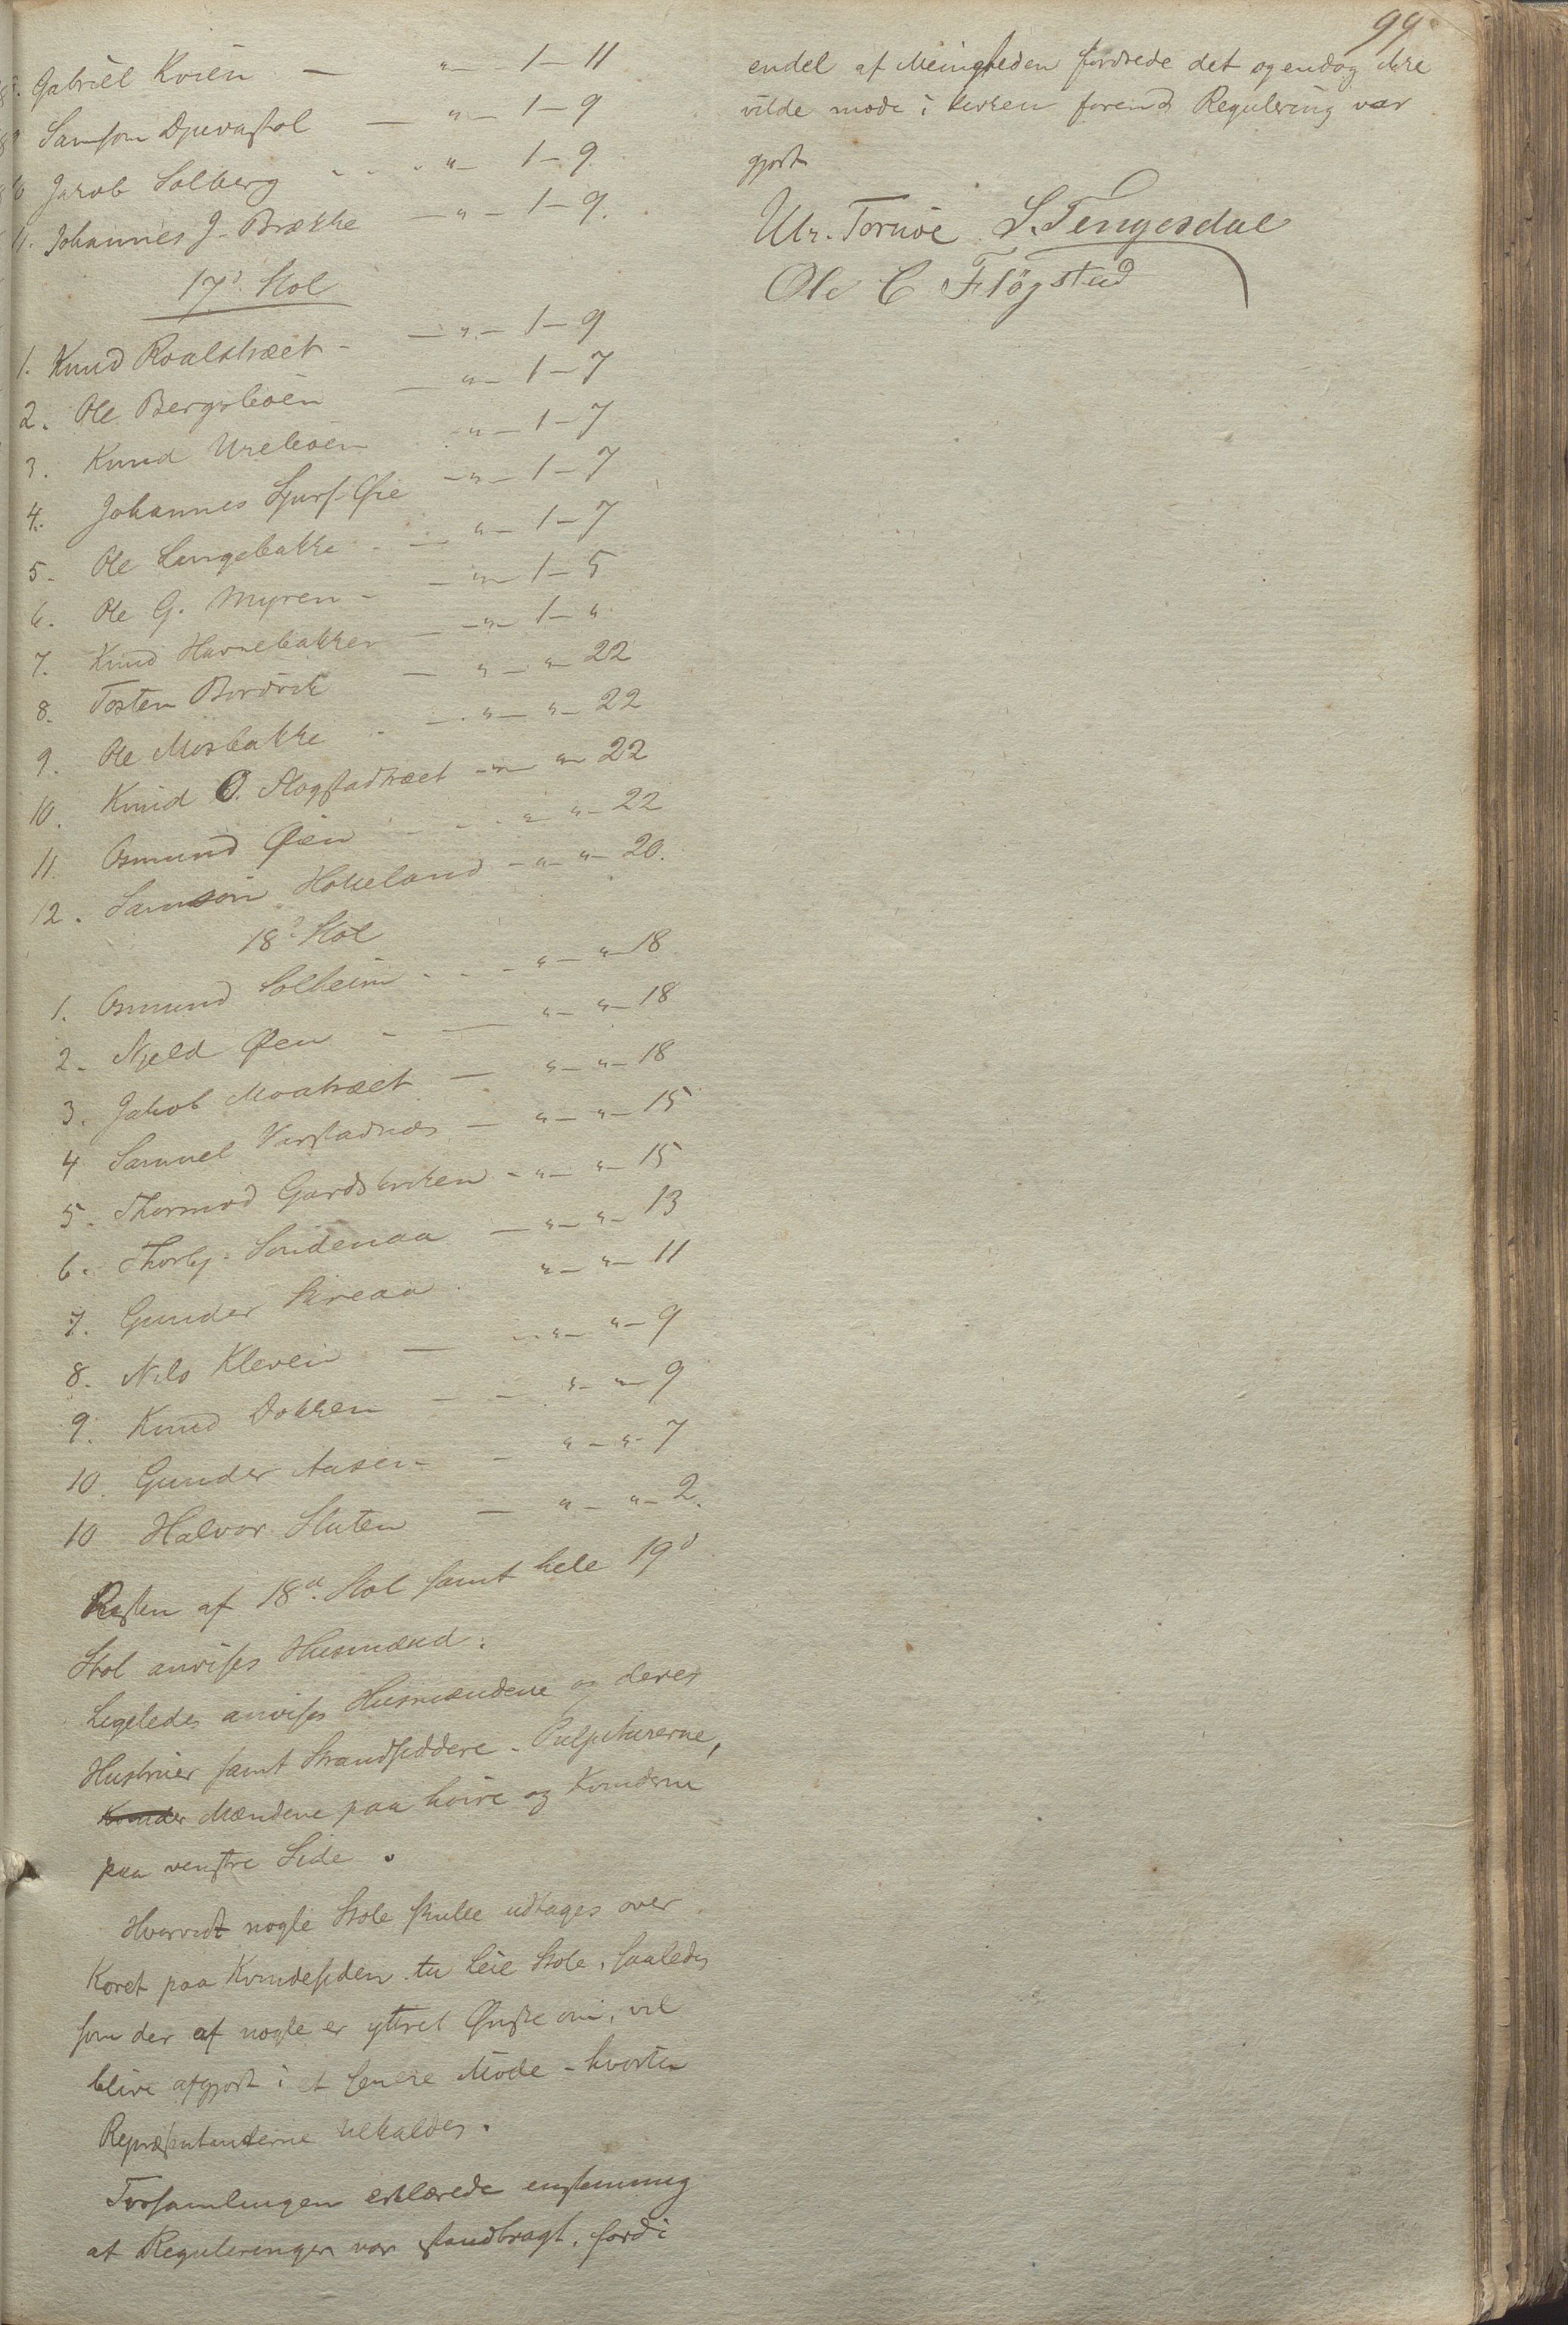 99
8. Gabriel Kvien — " — 1 — 11
9 Samson Djuvastøl — " — 1 — 9
10 Jakob Solberg - - - " — 1 — 9
11. Johannes J. Brække — " — 1 — 9.
17d. Stol
1. Knud Roalstræet - — " — 1 — 9
2. Ole Bergsleøen — " — 1 — 7
3. Knud Ureleøen - " — 1 — 7
4. Johannes Sjurs. Øie — " — 1 — 7
5. Ole Langebakke - — " — 1 — 7
6. Ole G. Myren - — " — 1 — 5
7. Knud Havrebakken — " — 1 — "
8. Tosten Bordvik — " — " — 22
9. Ole Mosbakke - — " — " — 22
10. Knud O. Fløgstadtræet — " — " 22
11. Osmund Øien - - - " — " — 22
12. Samson Hokeland — " — " — 20.
18d Stol
1. Osmund Solheim - - - " — " — 18
2. Njeld Øen - — " — " — 18
3. Jakob Moatræet — " — " — 18
4 Samuel Varstadnæs — " — " — 15
5. Thormod Gardskviken - " — " — 15
6. Thorbj. Søndenaa — " — " — 13
7. Gunder Skreaa - " — " — 11
8. Nils Kleven — - " — " — 9
9. Knud Dokken — — " — " — 9
10. Gunder Aasen - - " — " — 7
10 Halvor Sluten — " — " — 2.
Resten af 18d. Stol samt hele 19d
Stol anvises Husmænd.
Ligeledes anvises Husmændene og deres
Hustruer samt Strandsiddere - Pulpiturerne,
Kvinder Mændene paa høire og Kvinderne
paa venstre Side.
Hvorvidt nogle Stole skulle udtages over
Koret paa Kvindesiden til Leie Stole, saaledes
som der af nogle er yttret Ønske om, vil
blive afgjort i et senere Møde - hvortil
Repræsentanterne tilkaldes.
Forsamlingen erklærede enstemmig
at Reguleringen var istandbragt, fordi
endel af Menigheden fordrede det og endog ikke
vilde møde i Kirken førend Regulering var
gjort
Ulr. Tornøe S. Tengesdal
Ole C Fløgstad